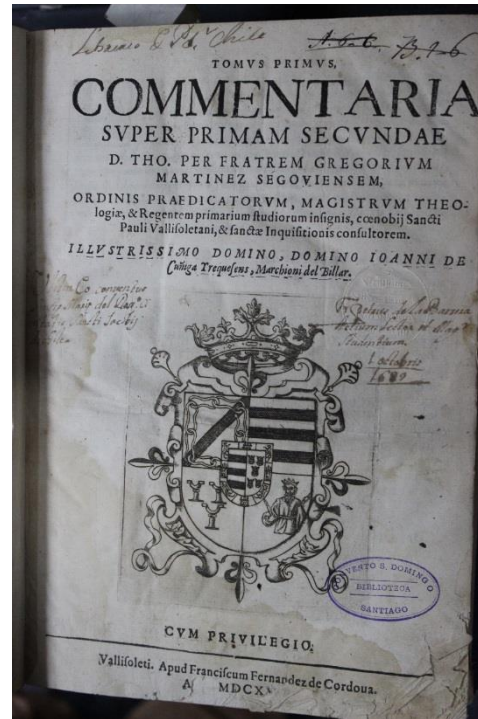 A.6.6. B.16
TOMVS PRIMVS,
COMMENTARIA
SVPER PRIMAM SECVNDAE
D. THO. PER FRATREM GREGORIVM
MARTINEZ SEGOVIENSEM,
ORDINIS PRAEDICATORVM, MAGISTRVM THEO-
logiæ, & Regentem primarium ſtudiorum inſignis, cœnobij Sancti
Pauli Valliſoletani, & ſanctæ Inquiſitionis conſultorem.
ILLVSTRISSIMO DOMINO, DOMINO IOANNI DE
Cuñiga Trequeſens, Marchioni del Billar.
conventus
octobris
1689
CONVENTO S. DOMINGO
BIBLIOTECA
SANTIAGO
CVM PRIVILEGIO,
Valliſoleti. Apud Franciſcum Fernandez de Cordoua.
MDCX